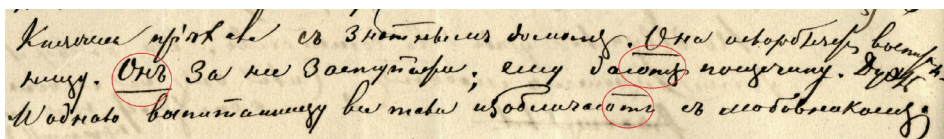 Княгиня пріѣхала съ знатнымъ домомъ. Она оскорбляетъ воспит
ницу. Онъ за нее заступается; ему даютъ пощечину. Дуэль.
И однаго воспитанницу выгнали изобличаютъ съ любовникомъ;